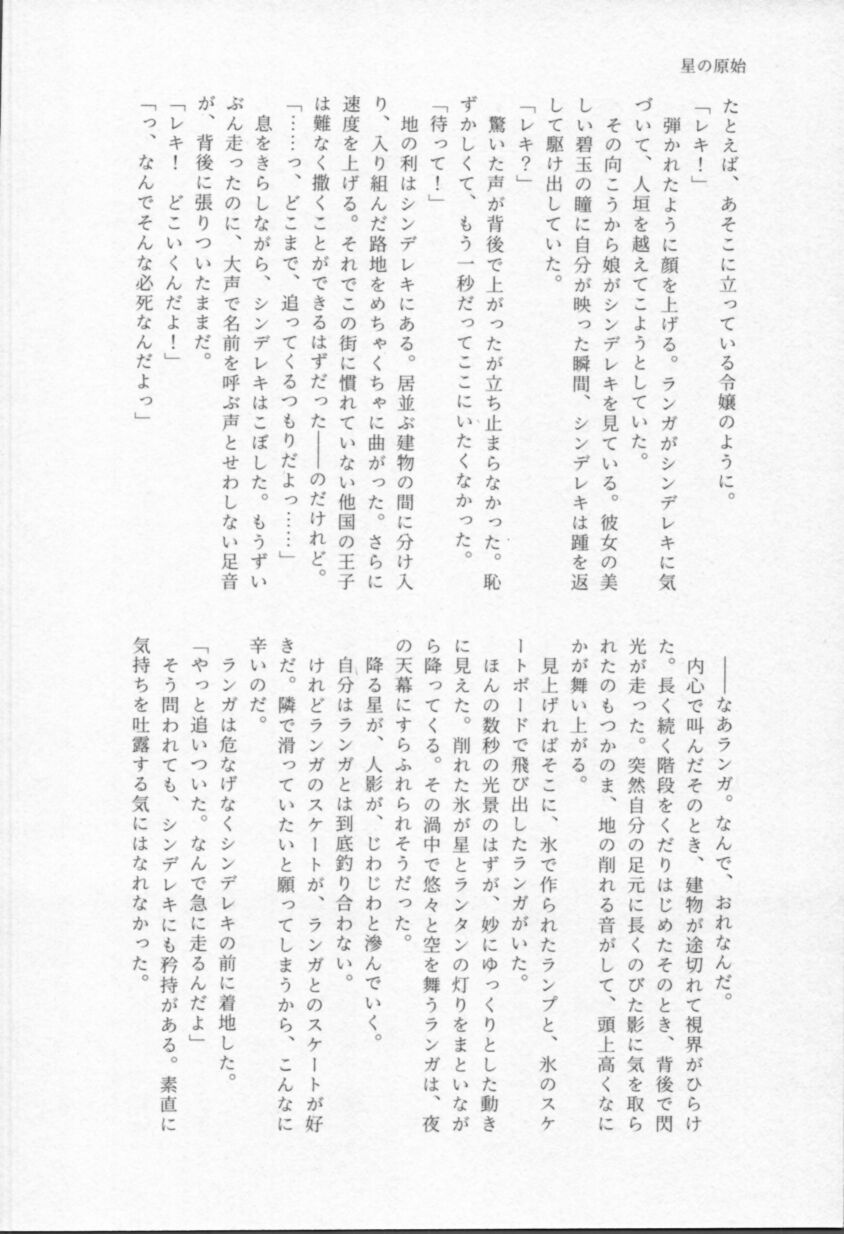 星の原始
たとえば、あそこに立っている令嬢のように。
「レキ！」
　弾かれたように顔を上げる。ランガがシンデレキに気
づいて、人垣を越えてこようとしていた。
　その向こうから娘がシンデレキを見ている。彼女の美
しい碧玉の瞳に自分が映った瞬間、シンデレキは踵を返
して駆け出していた。
「レキ？」
　驚いた声が背後で上がったが立ち止まらなかった。恥
ずかしくて、もう一秒だってここにいたくなかった。
「待って！」
　地の利はシンデレキにある。居並ぶ建物の間に分け入
り、入り組んだ路地をめちゃくちゃに曲がった。さらに
速度を上げる。それでこの街に慣れていない他国の王子
は難なく撒くことができるはずだった――のだけれど。
「……っ、どこまで、追ってくるつもりだよっ……」
　息をきらしながら、シンデレキはこぼした。もうずい
ぶん走ったのに、大声で名前を呼ぶ声とせわしない足音
が、背後に張りついたままだ。
「レキ！　どこいくんだよ！」
「っ、なんでそんな必死なんだよっ」
　――なあランガ。なんで、おれなんだ。
　内心で叫んだそのとき、建物が途切れて視界がひらけ
た。長く続く階段をくだりはじめたそのとき、背後で閃
光が走った。突然自分の足元に長くのびた影に気を取ら
れたのもつかのま、地の削れる音がして、頭上高くなに
かが舞い上がる。
　見上げればそこに、氷で作られたランプと、氷のスケ
ートボードで飛び出したランガがいた。
　ほんの数秒の光景のはずが、妙にゆっくりとした動き
に見えた。削れた氷が星とランタンの灯りをまといなが
ら降ってくる。その渦中で悠々と空を舞うランガは、夜
の天幕にすらふれられそうだった。
　降る星が、人影が、じわじわと滲んでいく。
　自分はランガとは到底釣り合わない。
　けれどランガのスケートが、ランガとのスケートが好
きだ。隣で滑っていたいと願ってしまうから、こんなに
辛いのだ。
　ランガは危なげなくシンデレキの前に着地した。
「やっと追いついた。なんで急に走るんだよ」
　そう問われても、シンデレキにも矜持がある。素直に
気持ちを吐露する気にはなれなかった。